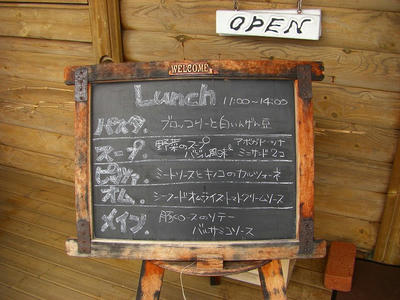 OPEN
WELCOME
Lunch 11:00~14:00
パスタ. ブロッコリーと白いんげん豆
スープ. 野菜のスープ バジル風味 & アボカド・ツナ ミニサード2コ
ピッツァ ミートソースとキノコのカルツォーネ
オム. シーフードオムライストマトクリームソース
メイン. 豚ロースのソテー
バルサミコソース